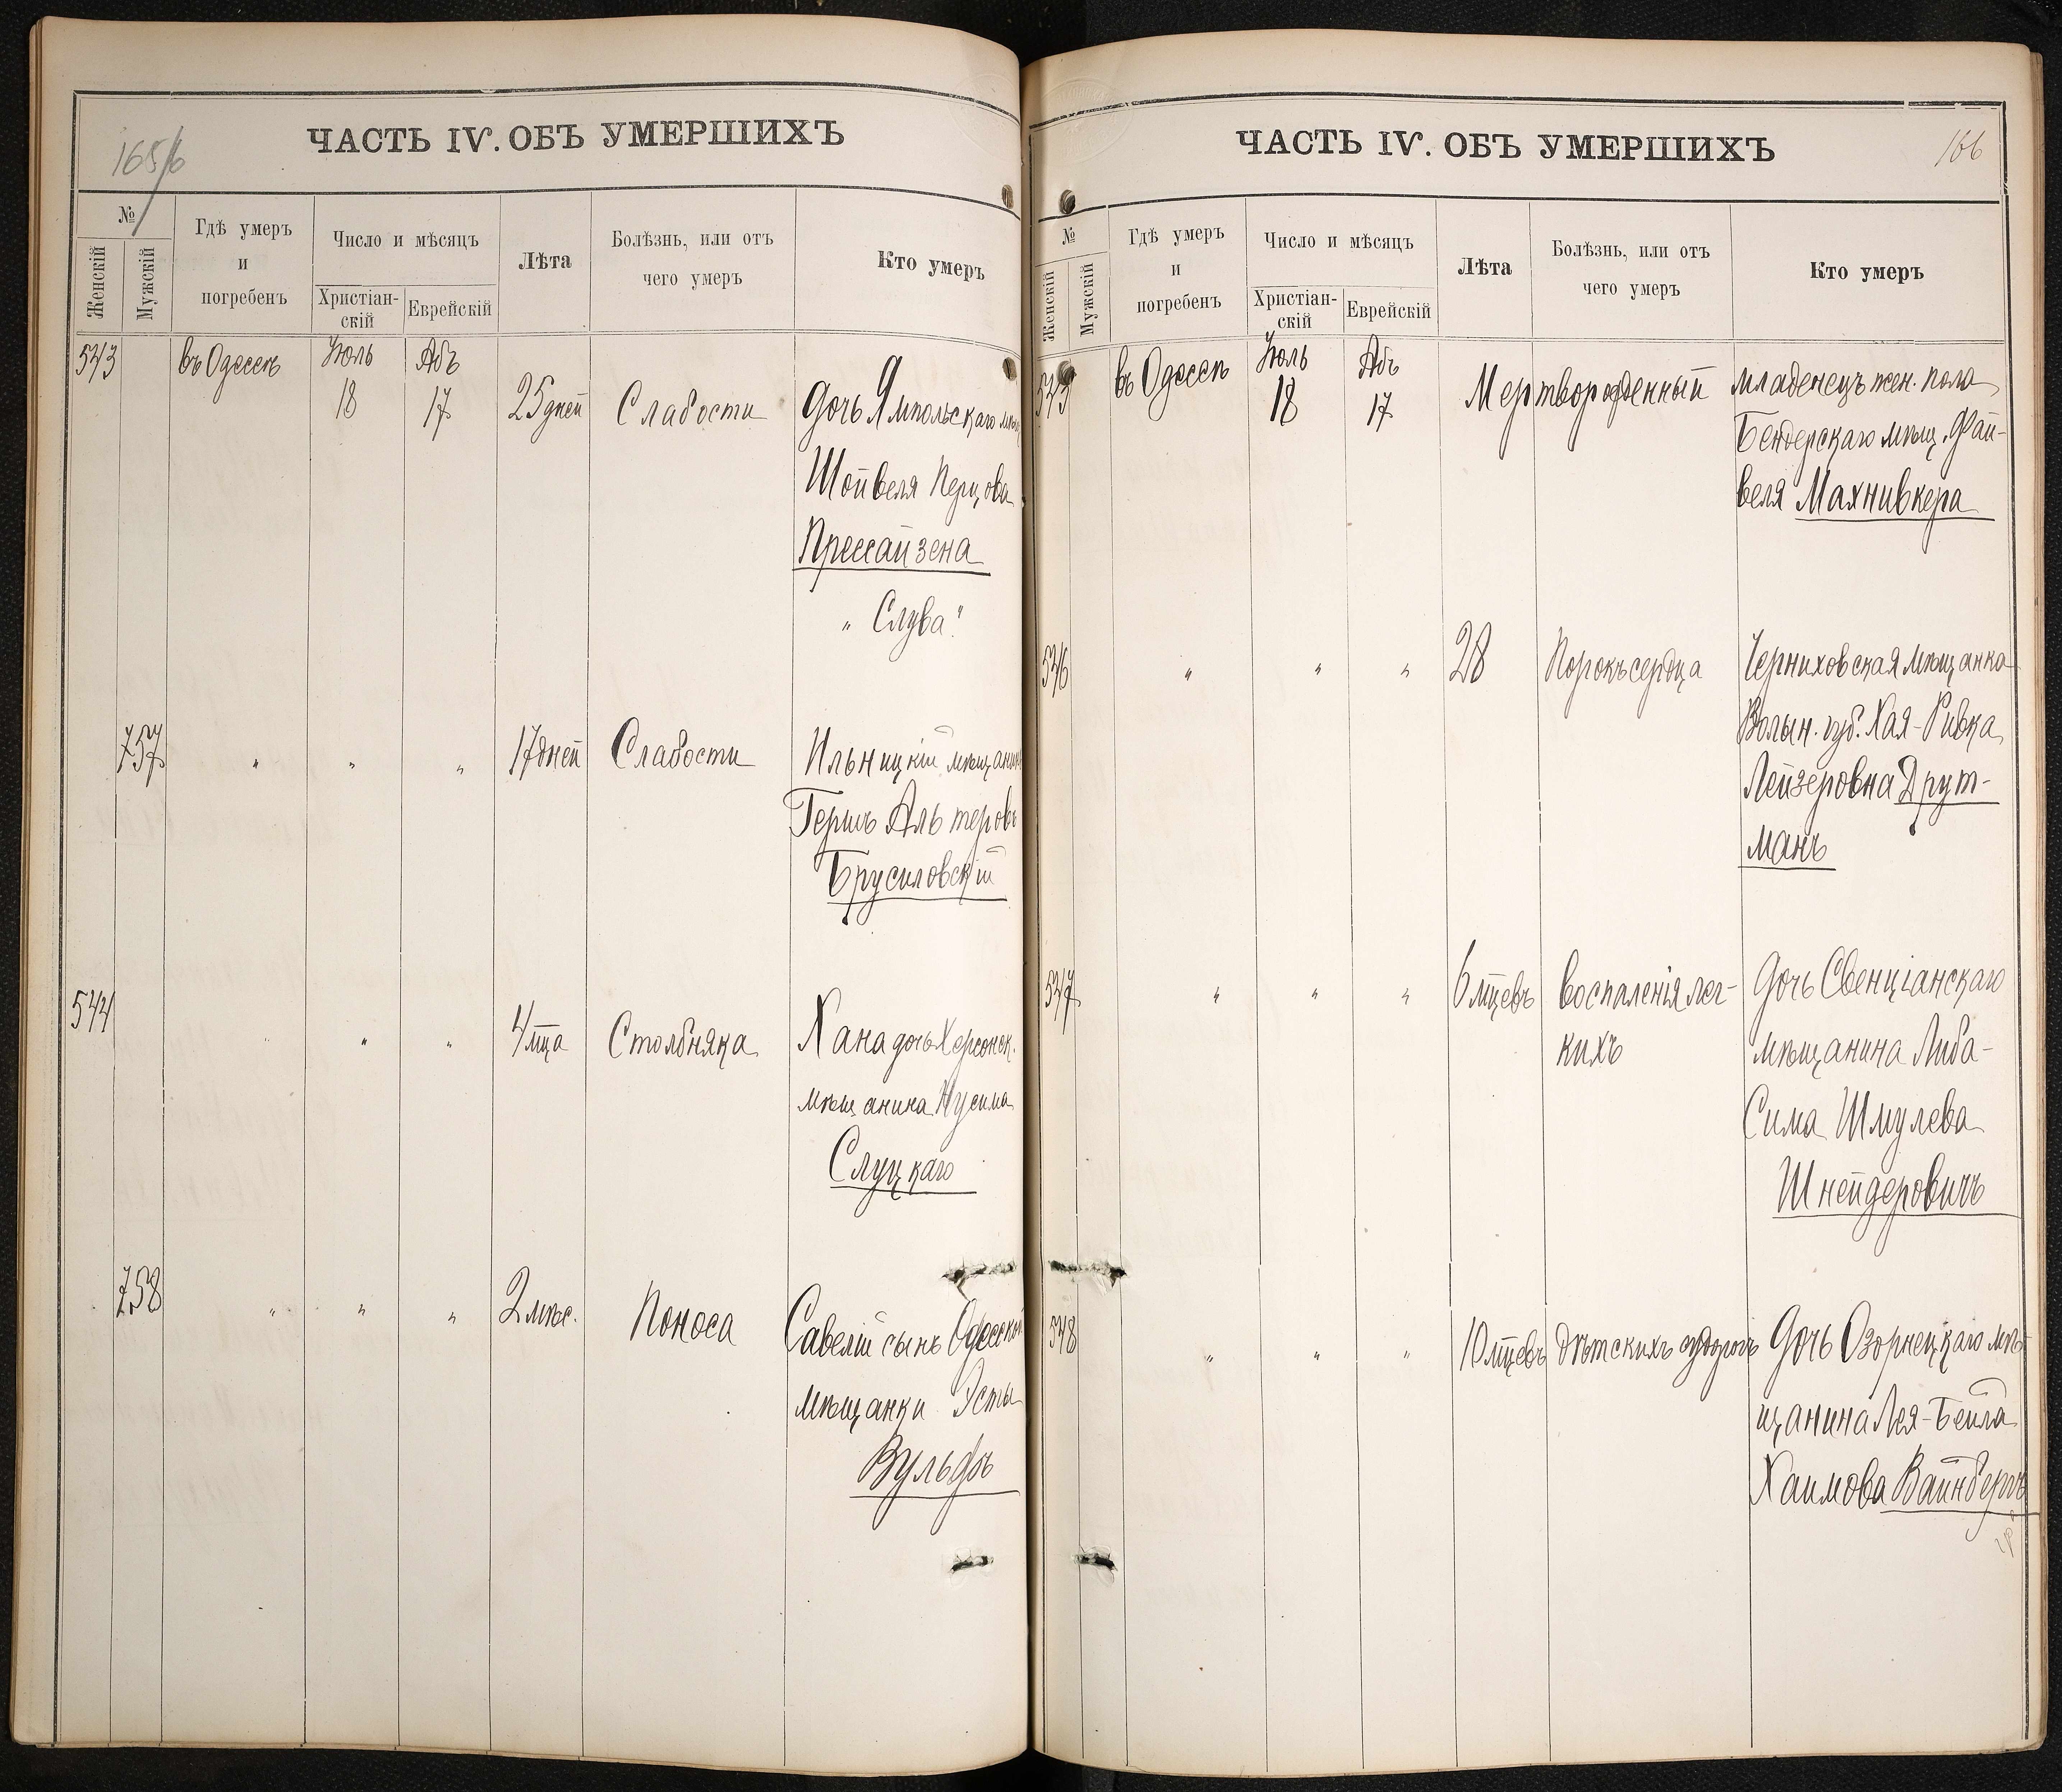 165/6
ЧАСТЬ IV. ОБЪ УМЕРШИХЪ
№
Женскій
Мужскій
Гдѣ умеръ
и
погребенъ
Число и мѣсяцъ
Христіан-
скій
Еврейскій
Лѣта
Болѣзнь, или отъ
чего умеръ
Кто умеръ
543 въ Одессѣ Іюль 18 Абъ 17 25 дней Слабости Дочь Ямпольскаго мѣщ
Шойвеля Перцова
Прессайзена
„ Слува."
757 „ „ „ 17 дней Слабости Ильницкій мѣщанинъ
Гершъ Альтеровъ
Брусиловскій
544 „ „ „ 4 мца Столбняка Хана дочь Херсонск.
мѣщанина Нусима
Слуцкаго
758 „ „ „ 2 мѣс. Поноса Савелій сынъ Одесской
мѣщанки Эсты
Вульфъ
166
ЧАСТЬ IV. ОБЪ УМЕРШИХЪ
№
Женскій
Мужскій
Гдѣ умеръ
и
погребенъ
Число и мѣсяцъ
Христіан-
скій
Еврейскій
Лѣта
Болѣзнь, или отъ
чего умеръ
Кто умеръ
545 въ Одессѣ Іюль 18 Абъ 17 Мертворожденный младенецъ жен. пола
Бендерскаго мѣщ. Фай-
веля Махнивкера
546 „ „ „ 28 Порокъ сердца Черниховская мѣщанка
Волын. губ. Хая-Ривка
Лейзеровна Друт-
манъ
547 „ „ „ 6 мцевъ воспаленія лег- Дочь Свенціанскаго
кихъ мѣщанина Либа-
Сима Шмулева
Шнейдеровичъ
548 „ „ „ 10 мцевъ дѣтскихъ судорогъ Дочь Озорнецкаго мѣ-
щанина Лея-Бейла
Хаимова Вайнбергъ